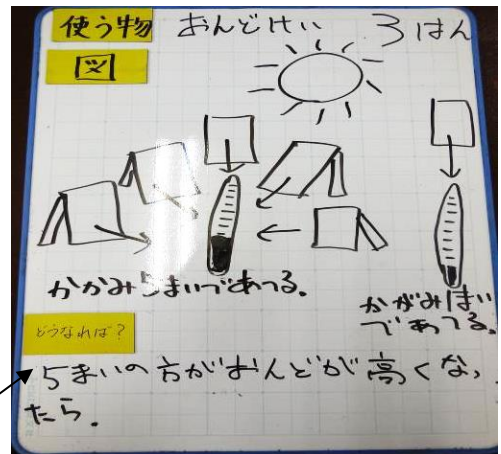 使う物 おんどけい 3はん
図
かがみ5まいであてる。
かがみ1まい
であてる。
どうなれば?
5まいの方がおんどが高くなっ
たら。